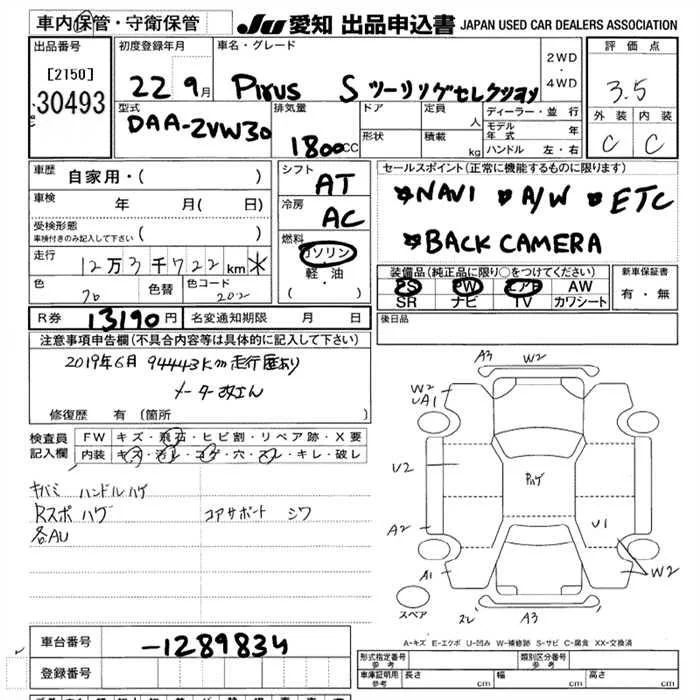 車内保管・守衛保管
JU 愛知 出品申込書 JAPAN USED CAR DEALERS ASSOCIATION
出品番号
[2150]
30493
初度登録年月
22 9月
車名・グレード
Pirus S ツーリングセレクション
2WD
4WD
評価点
3.5
外装 内装
C C
型式
DAA-ZVW30
排気量
1800CC
ドア
形状
定員 人
積載 kg
ディーラー・並行
モデル年式 年
ハンドル 左・右
車歴 自家用・( )
車検 年 月( 日)
受検形態
車検付きのみ記入して下さい ( )
走行 12万3千722km ✳
色 70 色替 色コード 202
シフト AT
冷房 AC
燃料
ガソリン
軽・油
( )
セールスポイント(正常に機能するものに限ります)
NAVI A/W ETC
BACK CAMERA
装備品(純正品に限り〇をつけてください)
PS PW エアB AW
SR ナビ TV カワシート
新車保証書
有・無
R券 13190円 名変通知期限 月 日
後日品
注意事項申告欄(不具合内容等は具体的に記入して下さい)
2019年6月 94443km走行歴あり
メーター改ざん
修復歴 有(箇所
検査員
記入欄
FW キズ・飛石・ヒビ割・リペア跡・X要
内装 キズ・汚レ・コゲ・穴・スレ・キレ・破レ
キバミ ハンドルハゲ
Rスポ ハゲ コアサポート シワ
各AU
A3 W2
W2
UA1
U2
ハゲ
A2
U1
A1
W2
スペア
A3
A-キズ E-エクボ U-凹み W-補修跡 S-サビ C-腐食 XX-交換済
車台番号 -1289834
登録番号
形式指定番号 参考
類別区分番号 参考
車庫証明用 参考 長さ cm 幅 cm 高さ cm